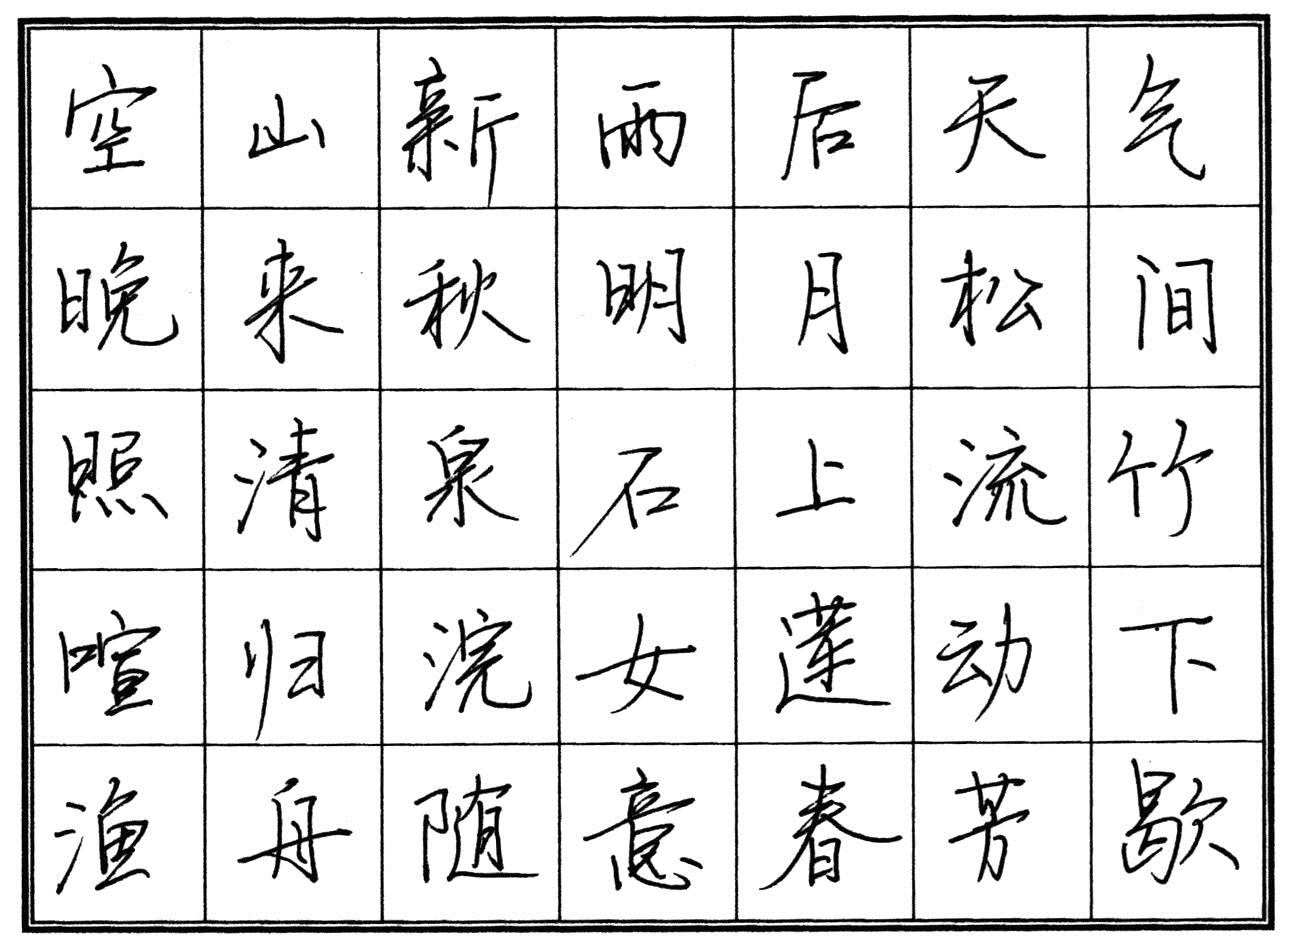 空山新雨后天气
晚来秋明月松间
照清泉石上流竹
喧归浣女莲动下
渔舟随意春芳歇